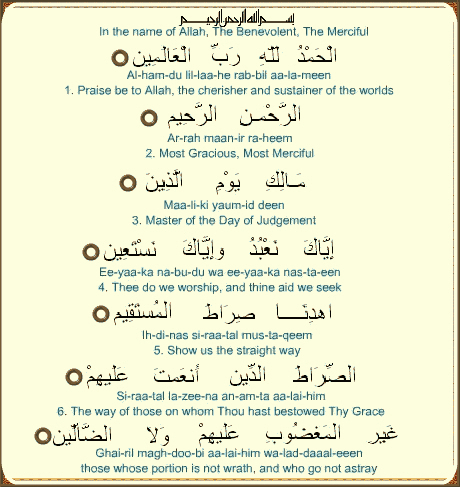 بسم الله الرحمن الرحيم
In the name of Allah, The Benevolent, The Merciful
الْحَمْدُ لِلّهِ رَبِّ الْعَالَمِين
Al-ham-du lil-laa-he rab-bil aa-la-meen
1. Praise be to Allah, the cherisher and sustainer of the worlds
الرَّحْمـنِ الرَّحِيم
Ar-rah maan-ir ra-heem
2. Most Gracious, Most Merciful
مَـالِكِ يَوْمِ الَّذِينَ
Maa-li-ki yaum-id deen
3. Master of the Day of Judgement
إِيَّاكَ نَعْبُدُ وإِيَّاكَ نَسْتَعِين
Ee-yaa-ka na-bu-du wa ee-yaa-ka nas-ta-een
4. Thee do we worship, and thine aid we seek
اهدِنَــــا صِرَاطَ المُستَقِيم
Ih-di-nas si-raa-tal mus-ta-qeem
5. Show us the straight way
الصِّرَاطَ الذِّين أَنعَمتَ عَلَيهِمْ
Si-raa-tal la-zee-na an-am-ta aa-lai-him
6. The way of those on whom Thou hast bestowed Thy Grace
غَيرِ المَغضُوبِ عَلَيهِمْ وَلا الضَّالِّين
Ghai-ril magh-doo-bi aa-lai-him wa-lad-daaal-eeen
those whose portion is not wrath, and who go not astray